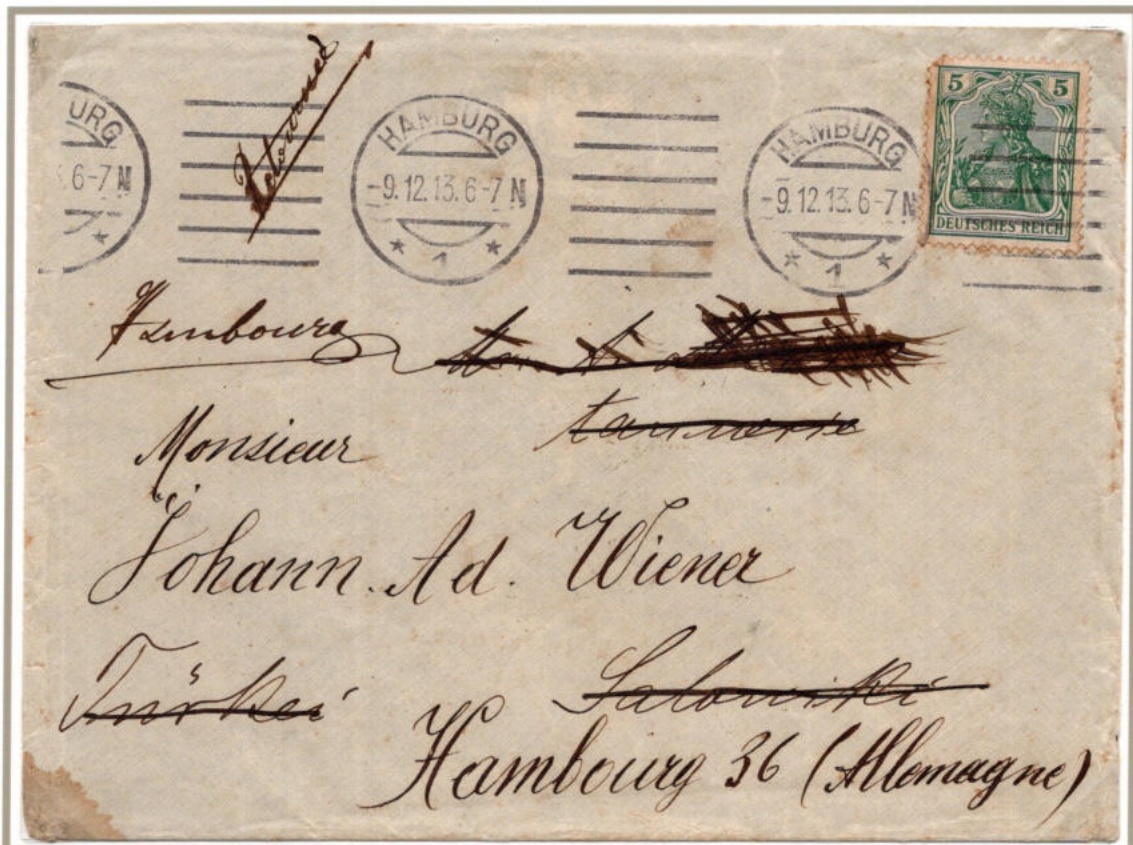 Retourné
URG
6-7 N
HAMBURG
-9.12.13. 6-7 N
* 1 *
HAMBURG
-9.12.13. 6-7 N
* 1 *
5 5
DEUTSCHES REICH
Hambourg
tannerie
Monsieur
Johann. Ad. Wiener
Türkei Saloniki
Hambourg 36 (Allemagne)